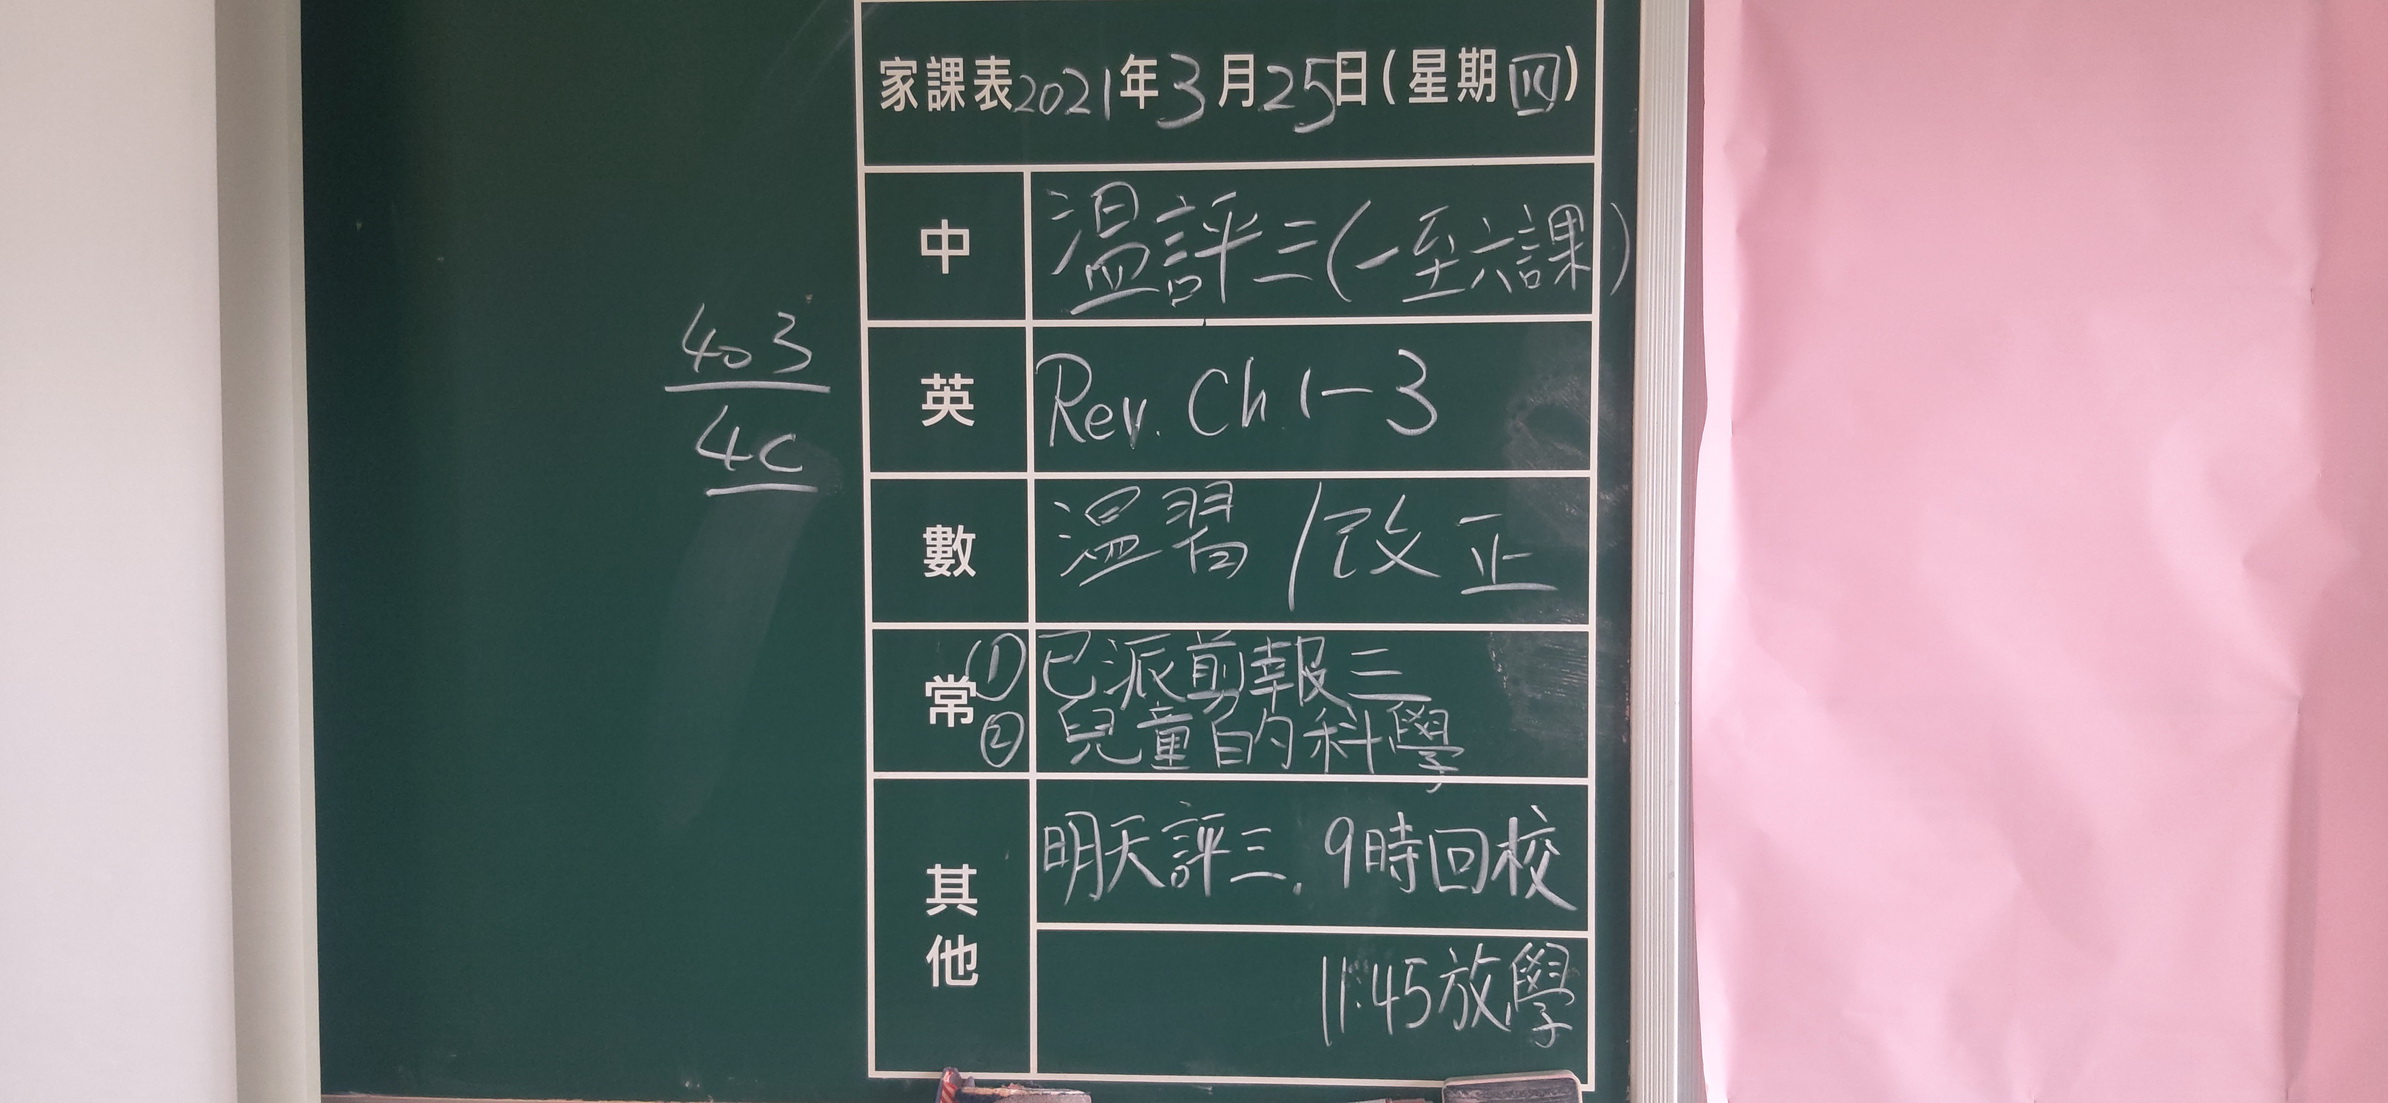 家課表2021年3月25日(星期四)
403
4C
中 温評三(一至六課)
英 Rev. Ch 1-3
數 温習/改正
常 ①已派剪報三
②兒童的科學
其他 明天評三. 9時回校
11:45放學